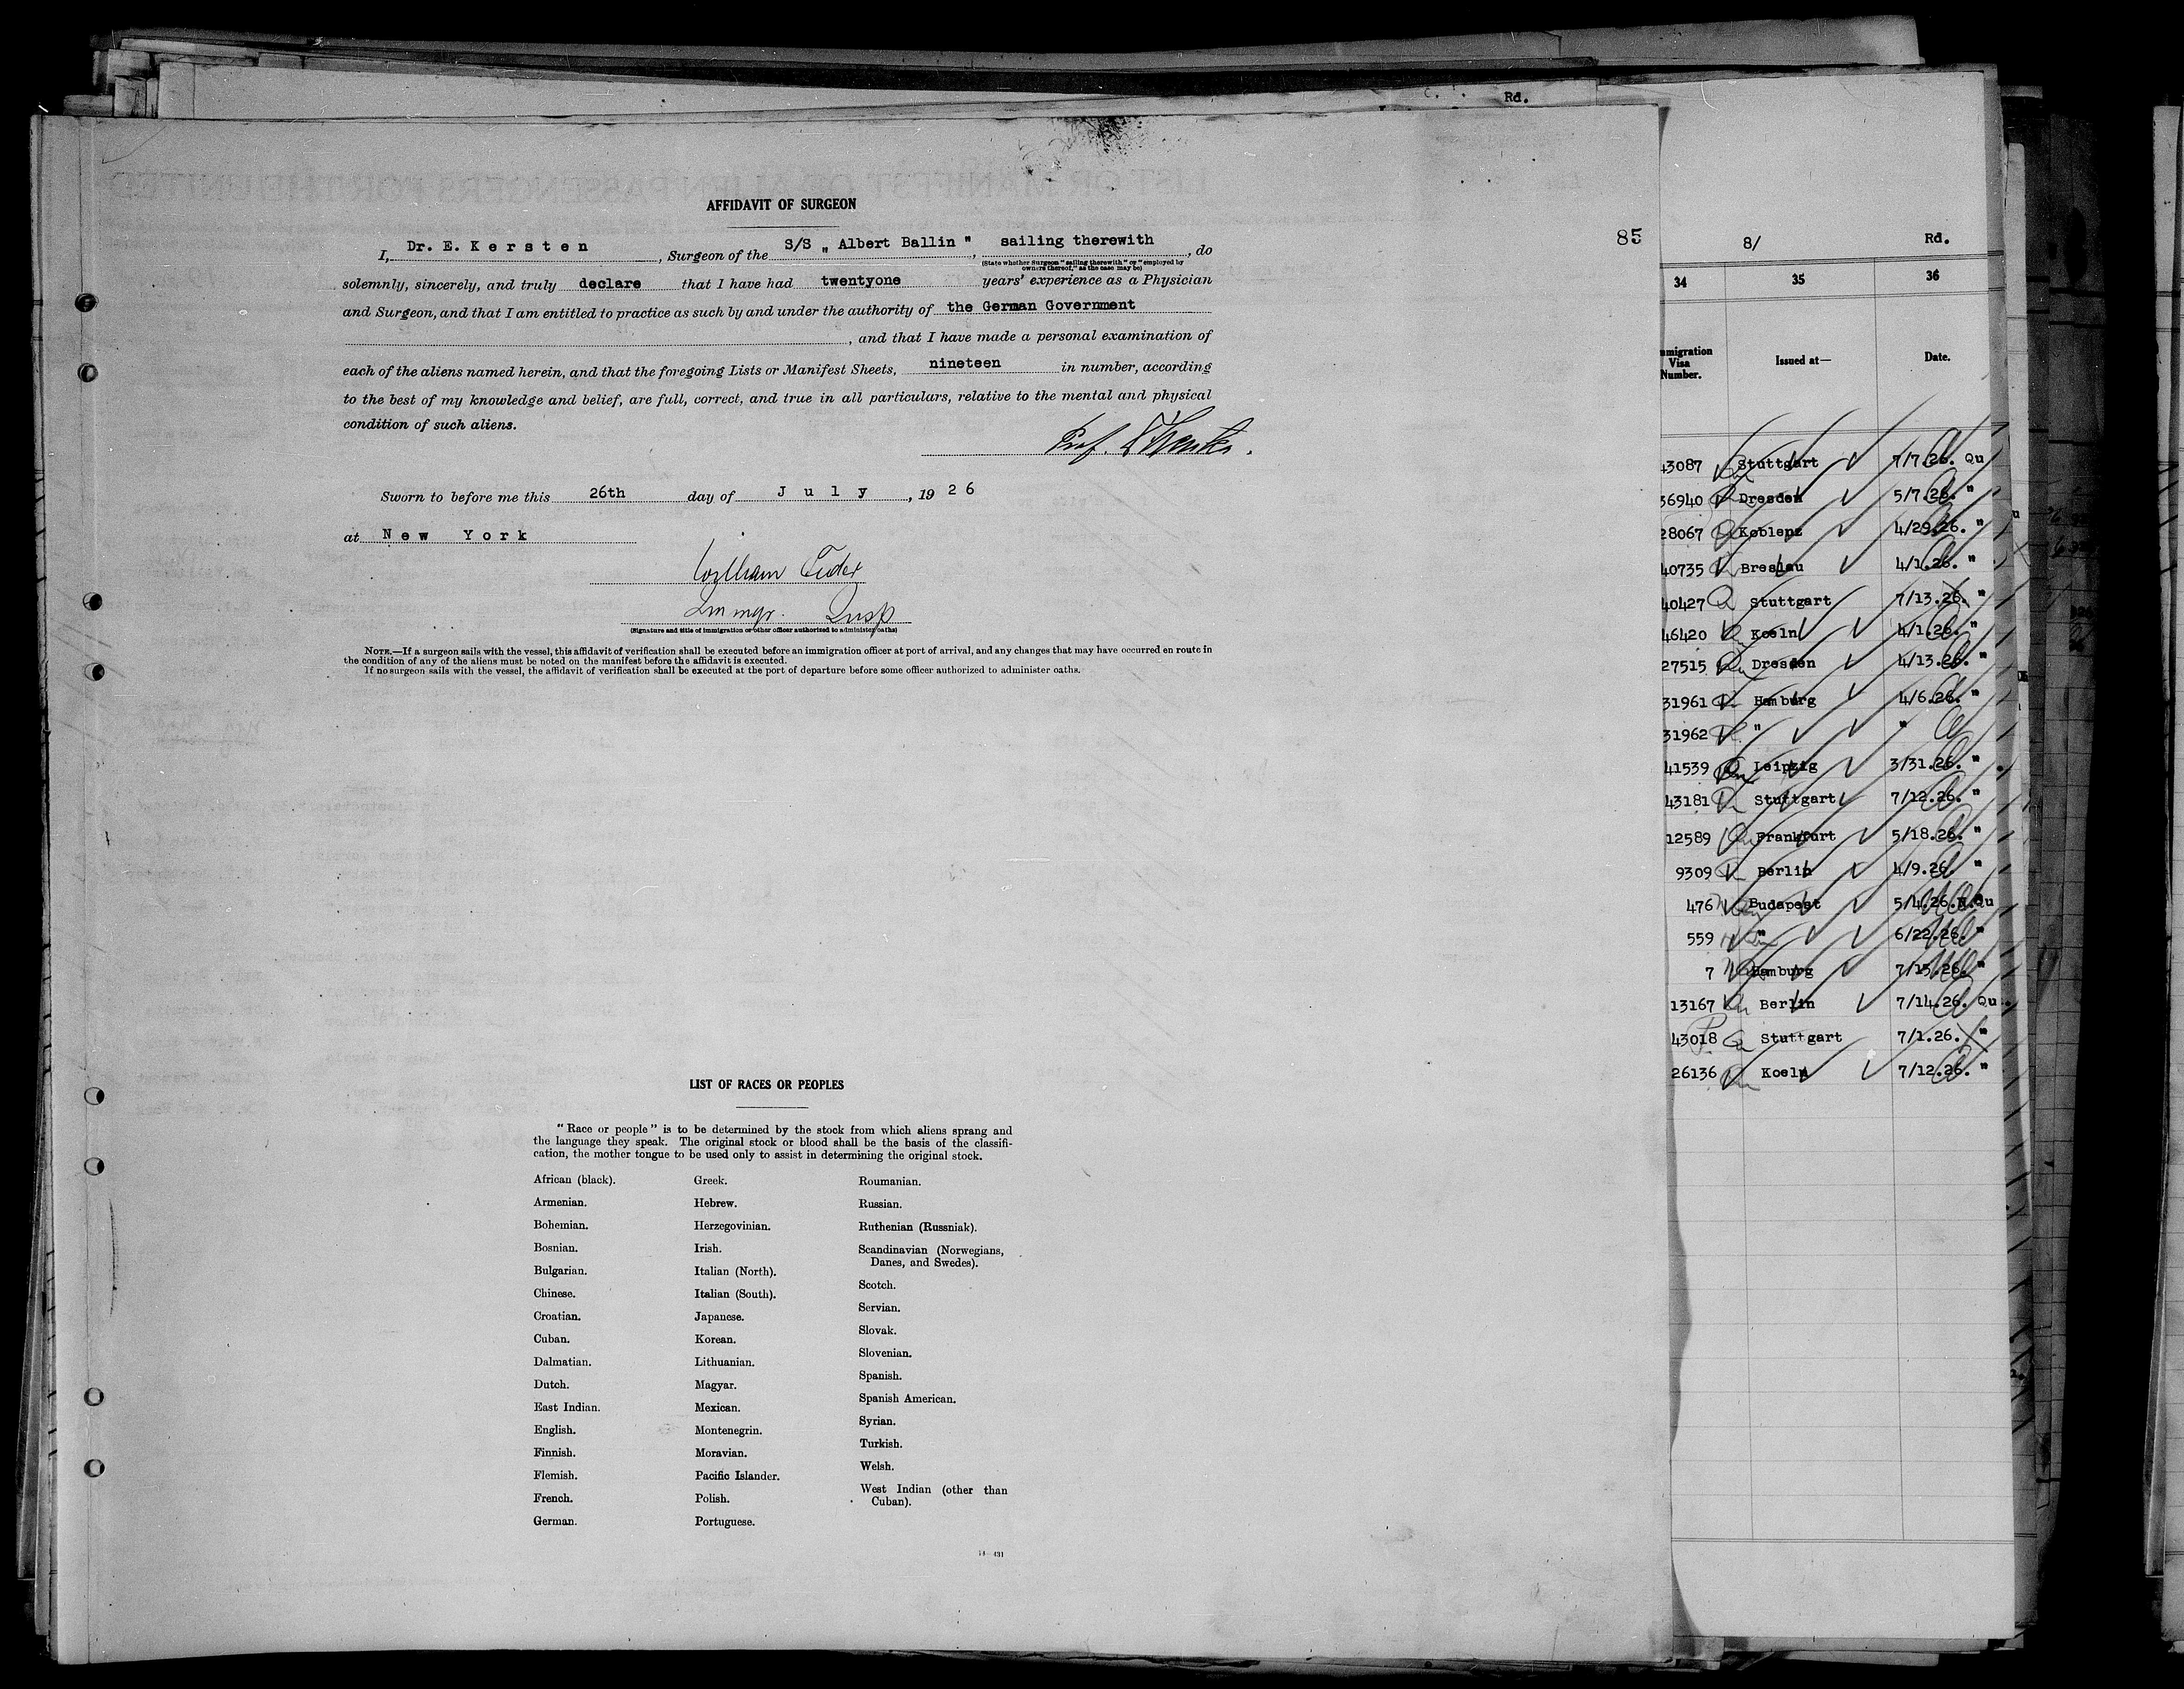 Rd.
AFFIDAVIT OF SURGEON
I, Dr. E. Kersten, Surgeon of the S/S „ Albert Ballin ", sailing therewith, do
(State whether Surgeon "sailing therewith" or "employed by
owners thereof," as the case may be)
solemnly, sincerely, and truly declare that I have had twentyone years' experience as a Physician
and Surgeon, and that I am entitled to practice as such by and under the authority of the German Government
, and that I have made a personal examination of
each of the aliens named herein, and that the foregoing Lists or Manifest Sheets, nineteen in number, according
to the best of my knowledge and belief, are full, correct, and true in all particulars, relative to the mental and physical
condition of such aliens.
Prof.
Sworn to before me this 26th day of July, 1926
at New York
William
Immgr. Insp
(Signature and title of immigration or other officer authorized to administer oaths)
NOTE.—If a surgeon sails with the vessel, this affidavit of verification shall be executed before an immigration officer at port of arrival, and any changes that may have occurred en route in
the condition of any of the aliens must be noted on the manifest before the affidavit is executed.
If no surgeon sails with the vessel, the affidavit of verification shall be executed at the port of departure before some officer authorized to administer oaths.
LIST OF RACES OR PEOPLES
"Race or people" is to be determined by the stock from which aliens sprang and
the language they speak. The original stock or blood shall be the basis of the classifi-
cation, the mother tongue to be used only to assist in determining the original stock.
African (black).
Armenian.
Bohemian.
Bosnian.
Bulgarian.
Chinese.
Croatian.
Cuban.
Dalmatian.
Dutch.
East Indian.
English.
Finnish.
Flemish.
French.
German.
Greek.
Hebrew.
Herzegovinian.
Irish.
Italian (North).
Italian (South).
Japanese.
Korean.
Lithuanian.
Magyar.
Mexican.
Montenegrin.
Moravian.
Pacific Islander.
Polish.
Portuguese.
Roumanian.
Russian.
Ruthenian (Russniak).
Scandinavian (Norwegians,
Danes, and Swedes).
Scotch.
Servian.
Slovak.
Slovenian.
Spanish.
Spanish American.
Syrian.
Turkish.
Welsh.
West Indian (other than
Cuban).
14—431
85
8/ Rd.
34 35 36
mmigration
Visa
Number.
Issued at—
Date.
43087 Stuttgart 7/7.26. Qu
36940 Dresden 5/7.26. "
28067 Koblenz 4/29.26. "
40735 Breslau 4/1.26. "
40427 Stuttgart 7/13.26. "
46420 Koeln 4/1.26. "
27515 Dresden 4/13.26. "
31961 Hamburg 4/6.26. "
31962 " "
41539 Leipzig 3/31.26. "
43181 Stuttgart 7/12.26. "
12589 Frankfurt 5/18.26. "
9309 Berlin 4/9.26. "
476 Budapest 5/4.26.N.Qu
559 " 6/22.26. "
7 Hamburg 7/15.26. "
13167 Berlin 7/14.26. Qu.
43018 Stuttgart 7/1.26. "
26136 Koeln 7/12.26. "